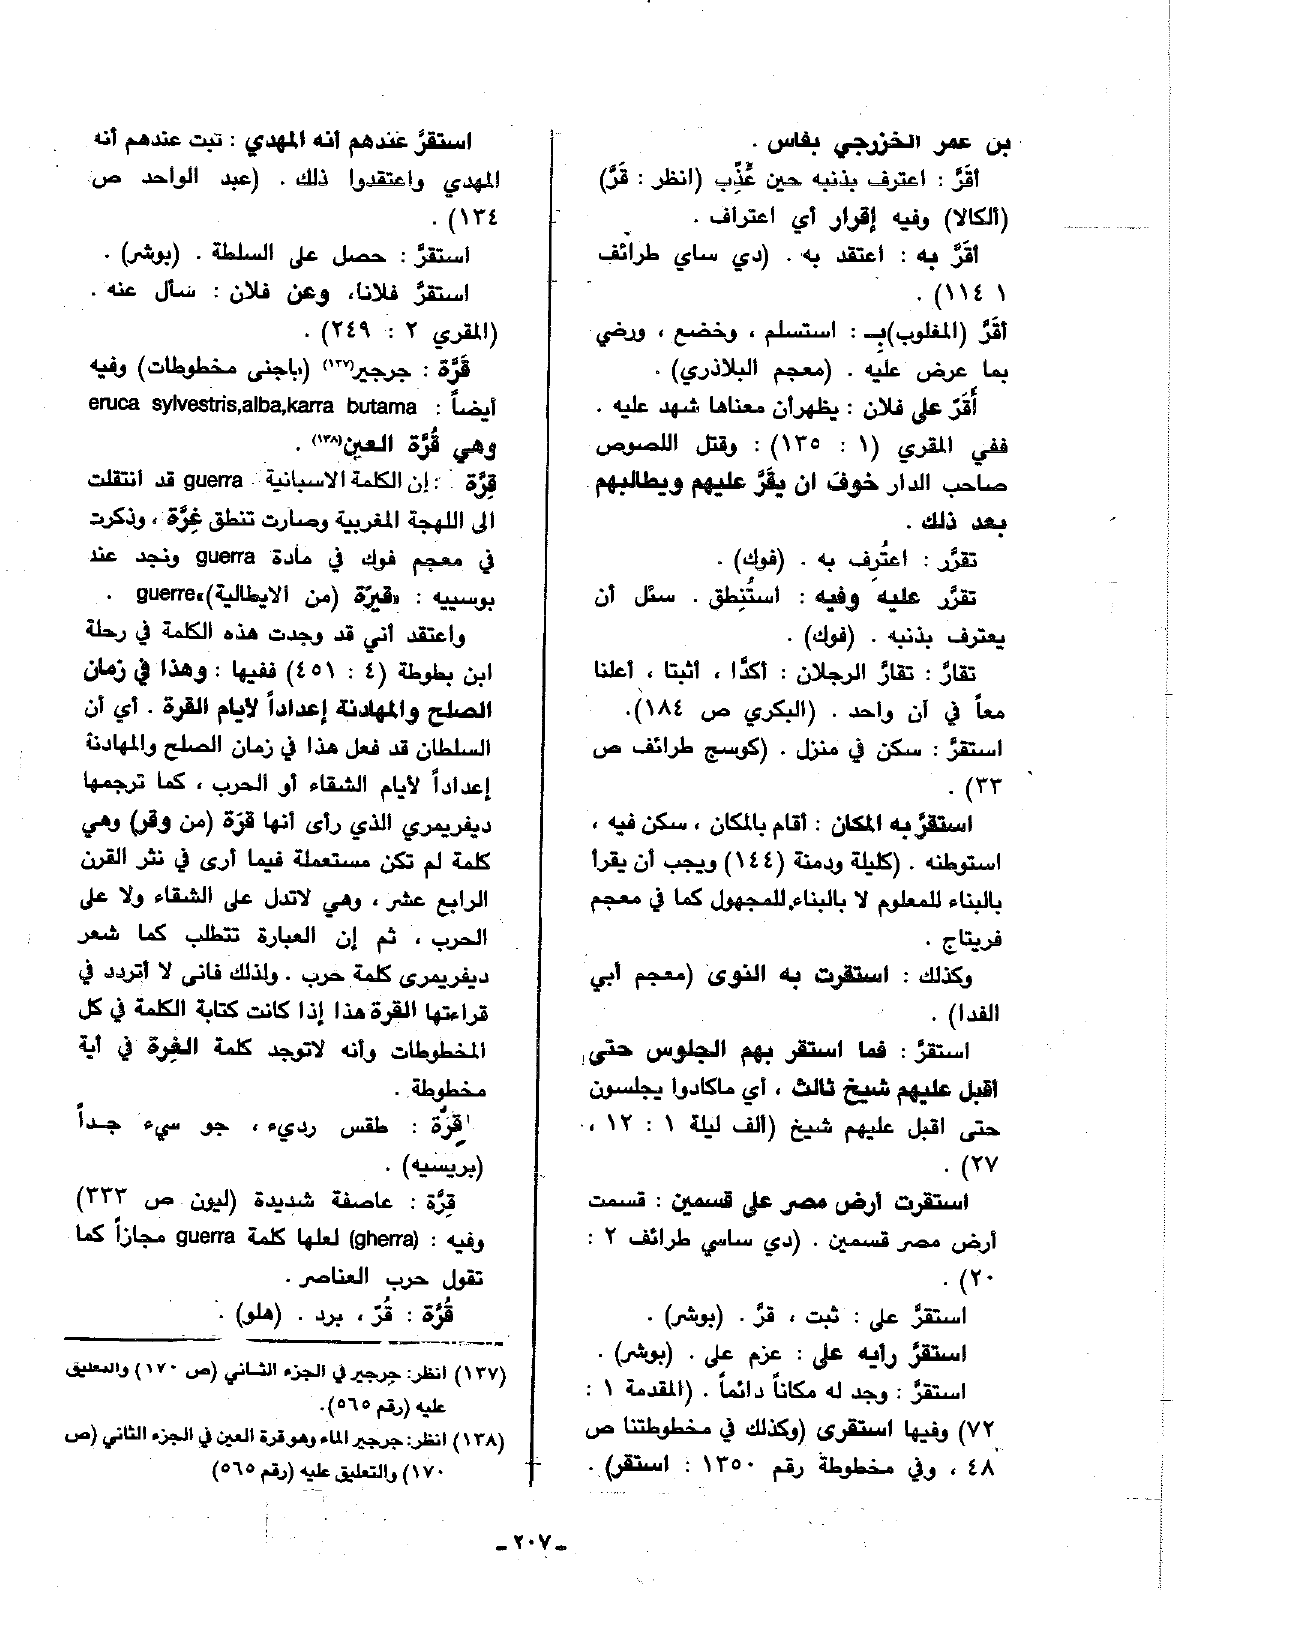 بن عمر الخزرجي بفاس .
أقَرَّ : اعترف بذنبه حين عُذِّب (انظر : قَرَّ)
(ألكالا) وفيه إقرار أي اعتراف .
أقَرَّ به : اعتقد به . (دي ساي طرائف
١ ١١٤) .
أقَرَّ (المغلوب)بِـ : استسلم ، وخضع ، ورضي
بما عرض عليه . (معجم البلاذري) .
أَقَرّ على فلان : يظهرأن معناها شهد عليه .
ففي المقري (١ : ١٣٥) : وقتل اللصوص
صاحب الدار خوفَ ان يقَرَّ عليهم ويطالبهم
بعد ذلك .
تقرَّر : اعتُرِف به . (فوك) .
تقرَّر عليه وفيه : استُنطِق . سئل أن
يعترف بذنبه . (فوك) .
تقارَّ : تقارَّ الرجلان : أكدَّا ، أثبتا ، أعلنا
معاً في آن واحد . (البكري ص ١٨٤).
استقرَّ : سكن في منزل . (كوسج طرائف ص
٣٣) .
استقرَّ به المكان : أقام بالمكان ، سكن فيه ،
استوطنه . (كليلة ودمنة (١٤٤) ويجب أن يقرأ
بالبناء للمعلوم لا بالبناء للمجهول كما في معجم
فريتاج .
وكذلك : استقرت به النوى (معجم أبي
الفدا) .
استقرَّ : فما استقر بهم الجلوس حتى
أقبل عليهم شيخ ثالث ، أي ماكادوا يجلسون
حتى اقبل عليهم شيخ (ألف ليلة ١ : ١٢ ،
٢٧) .
استقرت أرض مصر على قسمين : قسمت
أرض مصر قسمين . (دي ساسي طرائف ٢ :
٢٠) .
استقرَّ على : ثبت ، قرَّ . (بوشر) .
استقرَّ رأيه على : عزم على . (بوشر) .
استقرَّ : وجد له مكاناً دائماً . (المقدمة ١ :
٧٢) وفيها استقرى (وكذلك في مخطوطتنا ص
٤٨ ، وفي مخطوطة رقم ١٣٥٠ : استقر) .
استقرَّ عندهم أنه المهدي : تبت عندهم أنه
المهدي واعتقدوا ذلك . (عبد الواحد ص
١٣٤) .
استقرَّ : حصل على السلطة . (بوشر) .
استقرَّ فلانا، وعن فلان : سأل عنه .
(المقري ٢ : ٢٤٩) .
قَرَّة : جرجير(١٣٧) (باجنى مخطوطات) وفيه
أيضاً : eruca sylvestris,alba,karra butama
وهي قُرَّة العين(١٣٨) .
قِرَّة : إن الكلمة الاسبانية guerra قد انتقلت
الى اللهجة المغربية وصارت تنطق غِرَّة ، وذكرت
في معجم فوك في مادة guerra ونجد عند
بوسييه : «قيرّة (من الايطالية)»guerre .
واعتقد أني قد وجدت هذه الكلمة في رحلة
ابن بطوطة (٤ : ٤٥١) ففيها : وهذا في زمان
الصلح والمهادنة إعداداً لأيام القرة . أي أن
السلطان قد فعل هذا في زمان الصلح والمهادنة
إعداداً لأيام الشقاء أو الحرب ، كما ترجمها
ديفريمري الذي رأى أنها قرَة (من وقر) وهي
كلمة لم تكن مستعملة فيما أرى في نثر القرن
الرابع عشر ، وهي لاتدل على الشقاء ولا على
الحرب ، ثم إن العبارة تتطلب كما شعر
ديفريمرى كلمة حرب . ولذلك فانى لا أتردد في
قراءتها القرة هذا إذا كانت كتابة الكلمة في كل
المخطوطات وأنه لاتوجد كلمة الغِرة في أية
مخطوطة .
قِرَّة : طقس رديء ، جو سيء جداً
(بريسيه) .
قِرَّة : عاصفة شديدة (ليون ص ٣٣٣)
وفيه : (gherra) لعلها كلمة guerra مجازاً كما
تقول حرب العناصر .
قُرَّة : قُرّ ، برد . (هلو) .
(١٣٧) انظر: جرجير في الجزء الثاني (ص ١٧٠) والتعليق
عليه (رقم ٥٦٥).
(١٣٨) انظر: جرجير الماء وهو قرة العين في الجزء الثاني (ص
١٧٠) والتعليق عليه (رقم ٥٦٥)
ـ ٢٠٧ ـ